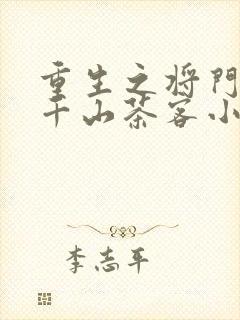 重生之将门
千山茶客小
李志平